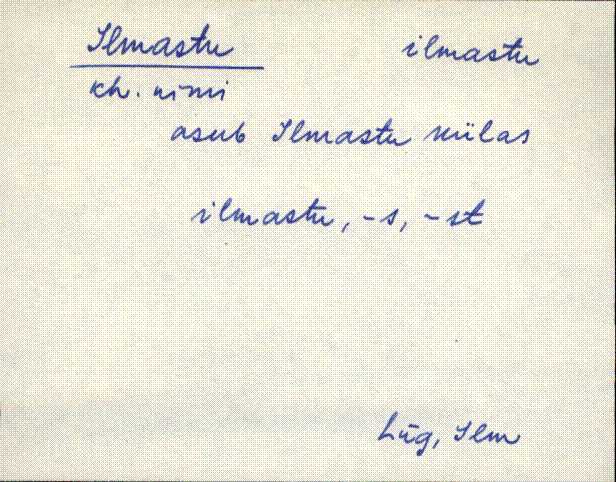 Ilmastu ilmastu
kh. nimi
asub Ilmastu külas
ilmastu, -s, -st
Lüg, Ilm